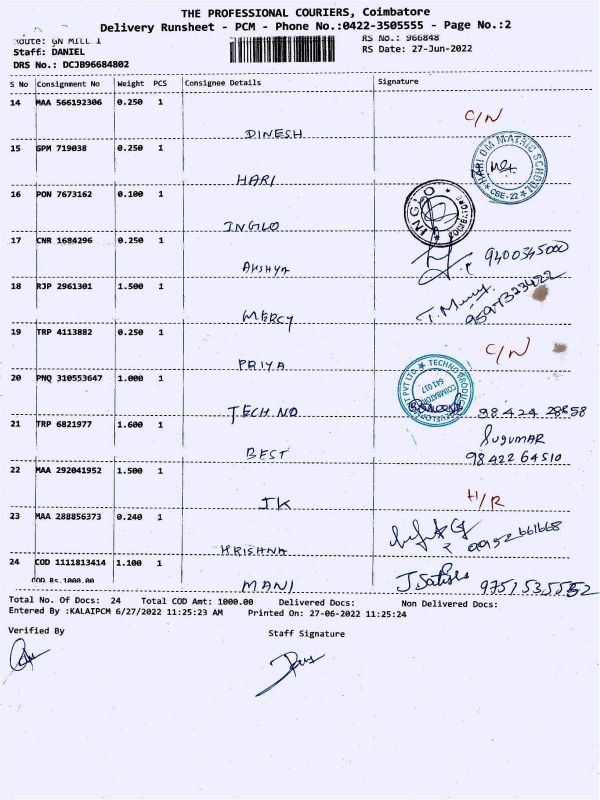 THE PROFESSIONAL COURIERS, Coimbatore
Delivery Runsheet - PCM - Phone No.:0422-3505555 - Page No.:2
Route: GN MILL 1
RS No.: 966848
Staff: DANIEL
RS Date: 27-Jun-2022
DRS No.: DCJB96684802
S No Consignment No Weight PCS Consignee Details Signature
14 MAA 566192306 0.250 1
C/N
DINESH
15 GPM 719038 0.250 1
HARI OM MATRIC SCHOOL
CBE-22
HARI
16 PON 7673162 0.100 1
INGLO
INGLO
17 CNR 1684296 0.250 1
9400345000
AKSHYA
18 RJP 2961301 1.500 1
T. Mercy
9597323422
MERCY
19 TRP 4113882 0.250 1
C/N
PRIYA
20 PNQ 310553647 1.000 1
COIMBATORE
641 017
TECH.NO
98424 28658
21 TRP 6821977 1.600 1
SUGUMAR
BEST
98422 64510
22 MAA 292041952 1.500 1
H/R
JK
23 MAA 288856373 0.240 1
09952661668
KRISHNA
24 COD 1111813414 1.100 1
COD Rs.1000.00
MANI
J Satish
9751535552
Total No. Of Docs: 24 Total COD Amt: 1000.00 Delivered Docs: Non Delivered Docs:
Entered By :KALAIPCM 6/27/2022 11:25:23 AM Printed On: 27-06-2022 11:25:24
Verified By
Staff Signature